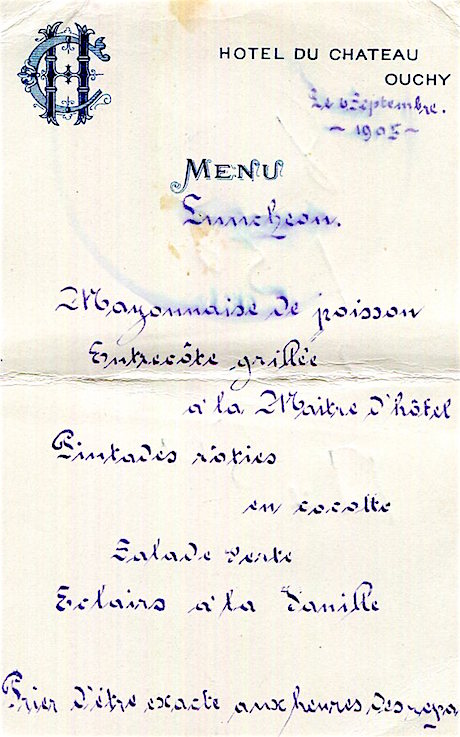 CH
HOTEL DU CHATEAU
OUCHY
Le 6 Septembre.
~ 1905 ~
MENU
Luncheon.
Mayonnaise de poisson
Entrecôte grillée
à la Maitre d'hôtel
Pintades rôties
en cocotte
Salade verte
Eclairs à la Vanille
Prier d'être exacte aux heures des repa